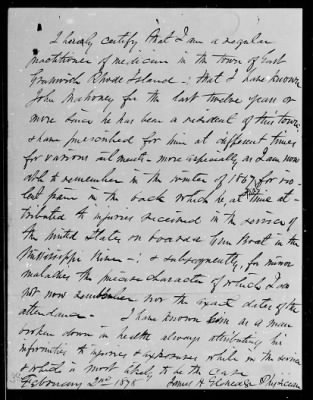 I hereby certify that I am a regular
practitioner of medicine in the town of East
Greenwich Rhode Island -; that I have known
John Mahoney for the last twelve years or
more since he has been a resident of this town
& have prescribed for him at different times
for various ailments - more especially as I am now
able to remember in the winter of 1867 for vio-
lent pain in the back which he, at the time at-
tributed to injuries received in the service of
the United States on board a Gun Boat in the
Mississippi River -; & subsequently, for minor
maladies the precise character of which I am
not now remember nor the exact dates of the
attendance - I have known him as a man
broken down in health always attributing his
infirmities to injuries & exposures while in the service
& which is most likely to be the case
February 2nd 1878 James H. Eldredge Physician